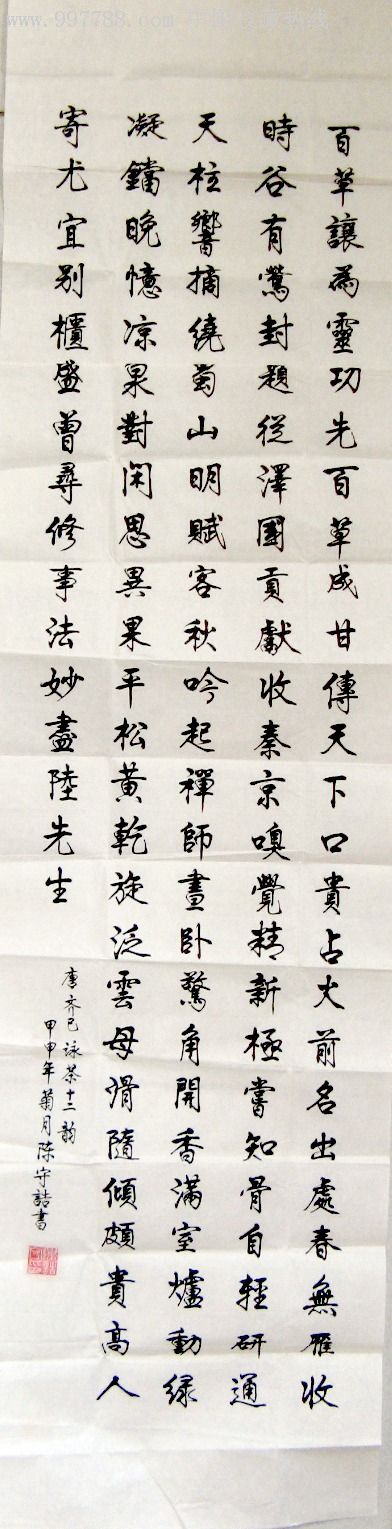 www.997788.com 中国收藏热线
百草讓為靈功先百草成甘傳天下口貴占火前名出處春無雁收
時谷有鶯封題從澤國貢獻收秦京嗅覺精新極嘗知骨自輕研通
天柱響摘繞蜀山明賦客秋吟起禪師晝卧驚角開香滿室爐動緑
凝鐺晚憶凉果對閑思異果平松黃乾旋泛雲母滑隨傾頗貴高人
寄尤宜别櫃盛曾尋修事法妙盡陸先生
唐齐己詠茶十二韵
甲申年菊月陈守誥書